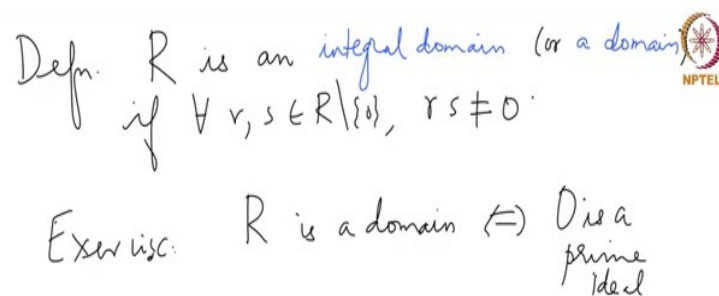 Defn. R is an integral domain (or a domain)
if ∀ r, s ∈ R\{0}, rs ≠ 0.
NPTEL
Exercise: R is a domain ⇔ 0 is a
prime
ideal